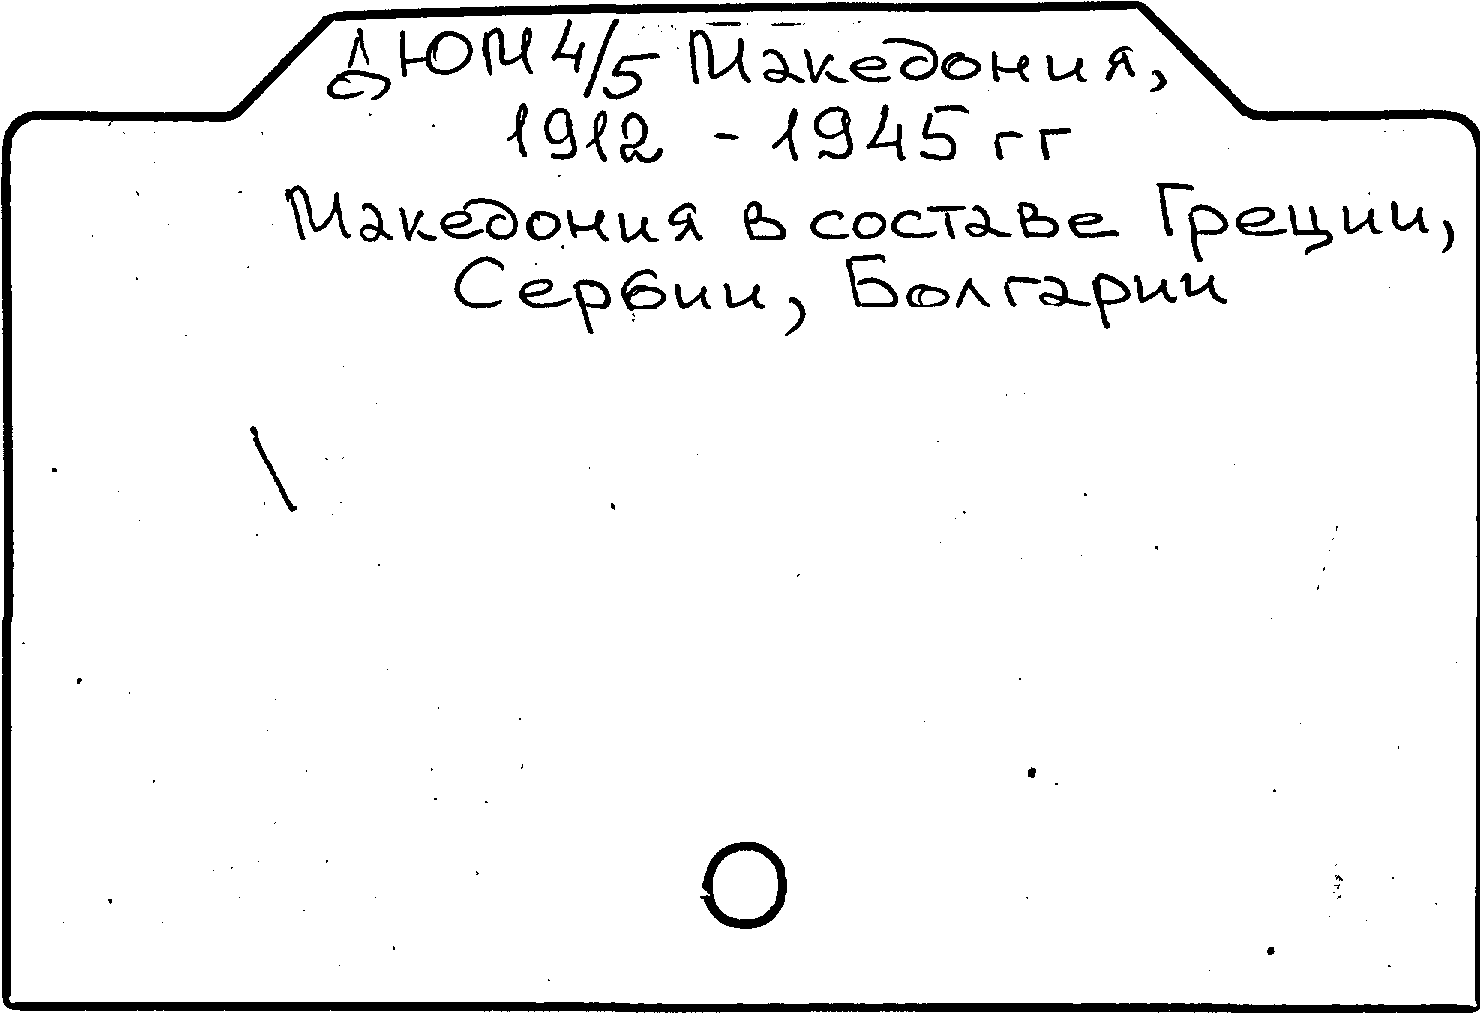 ДЮМ 4/5 Македония,
1912 - 1945 гг
Македония в составе Греции,
Сербии, Болгарии